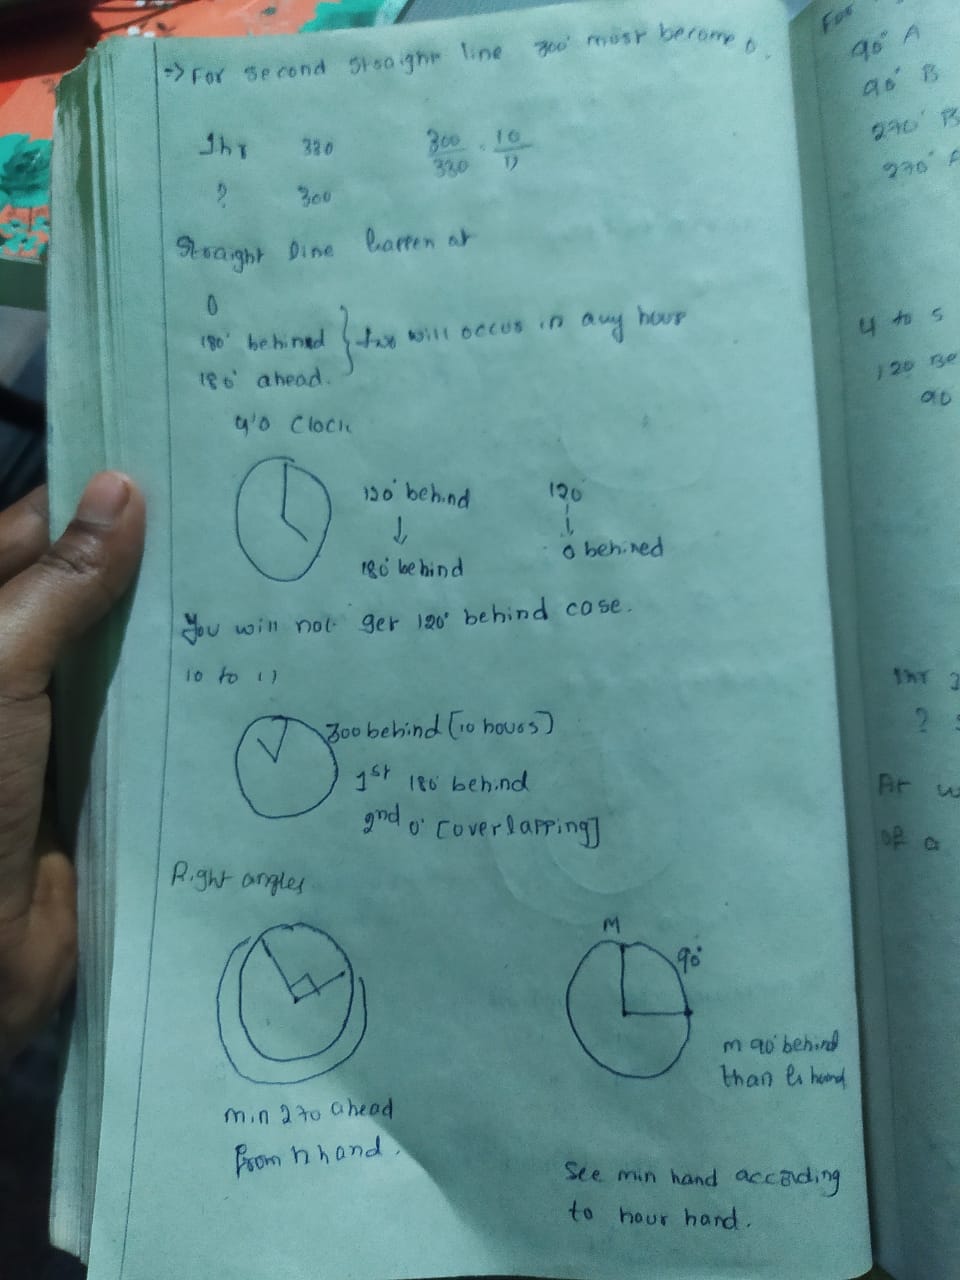 => For second straight line 300° must become 0.
1hr 330 300/330 · 10/11
? 300
Straight line happen at
0
180° behined } two will occus in any hour
180° ahead.
4'o Clock
120° behind 120
↓ ↓
180 behind 0 behined
You will not get 120° behind case.
10 to 11
300 behind [10 hours]
1st 180 behind
2nd 0° [overlapping]
Right angles
M
90°
m 90° behind
than h hand
min 270 ahead
from h hand.
See min hand according
to hour hard.
For
90° A
90° B
270° B
270°
4 to 5
120
90
1hr
?
At
of a